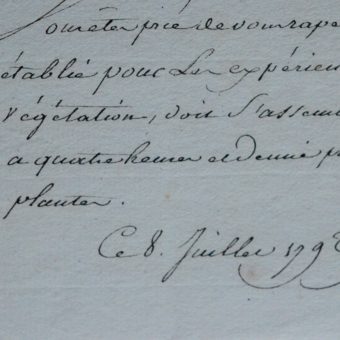 Vous êtes prié de vous rape
établie pour Les expérien
végétation, doit S'assem
a quatre heures et demie p
planter.
Ce 8. Juillet 179